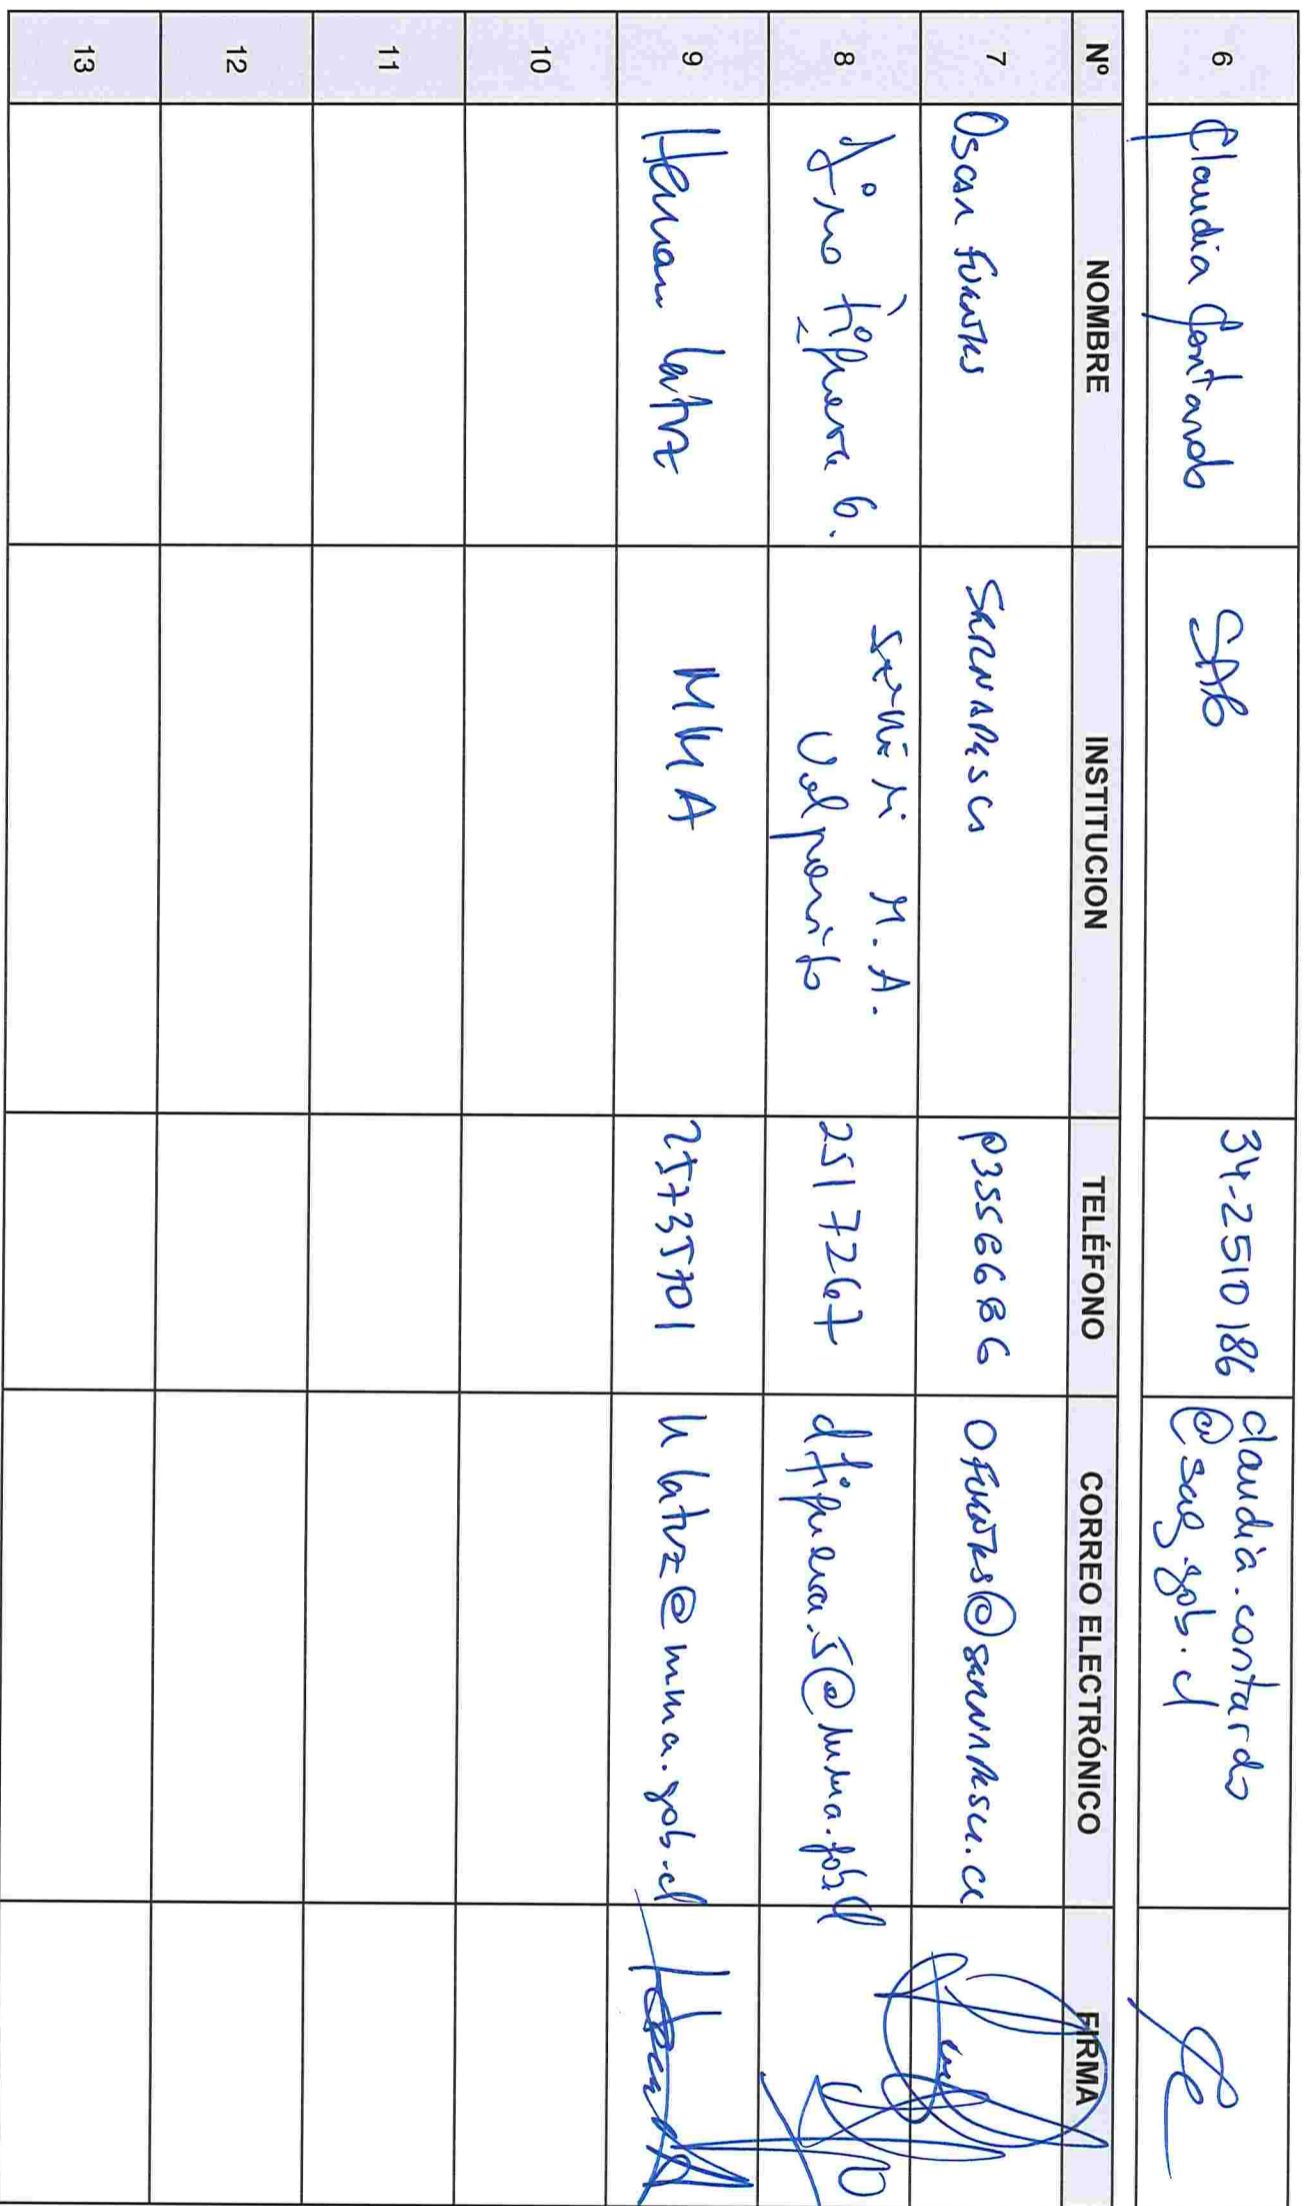 6 Claudia Contardo SAG 34-2510186 claudia.contardo
@sag.gob.cl
Nº NOMBRE INSTITUCION TELÉFONO CORREO ELECTRÓNICO FIRMA
7 Oscar Fuentes SERNAPESCA 93556686 ofuentes@sernapesca.cl
8 Figueroa G. M. A. 2517267 dfigueroa.5@mma.gob.cl
Valparaíso
9 Hernan Latuz MMA 25735701 hlatuz@mma.gob.cl
10
11
12
13